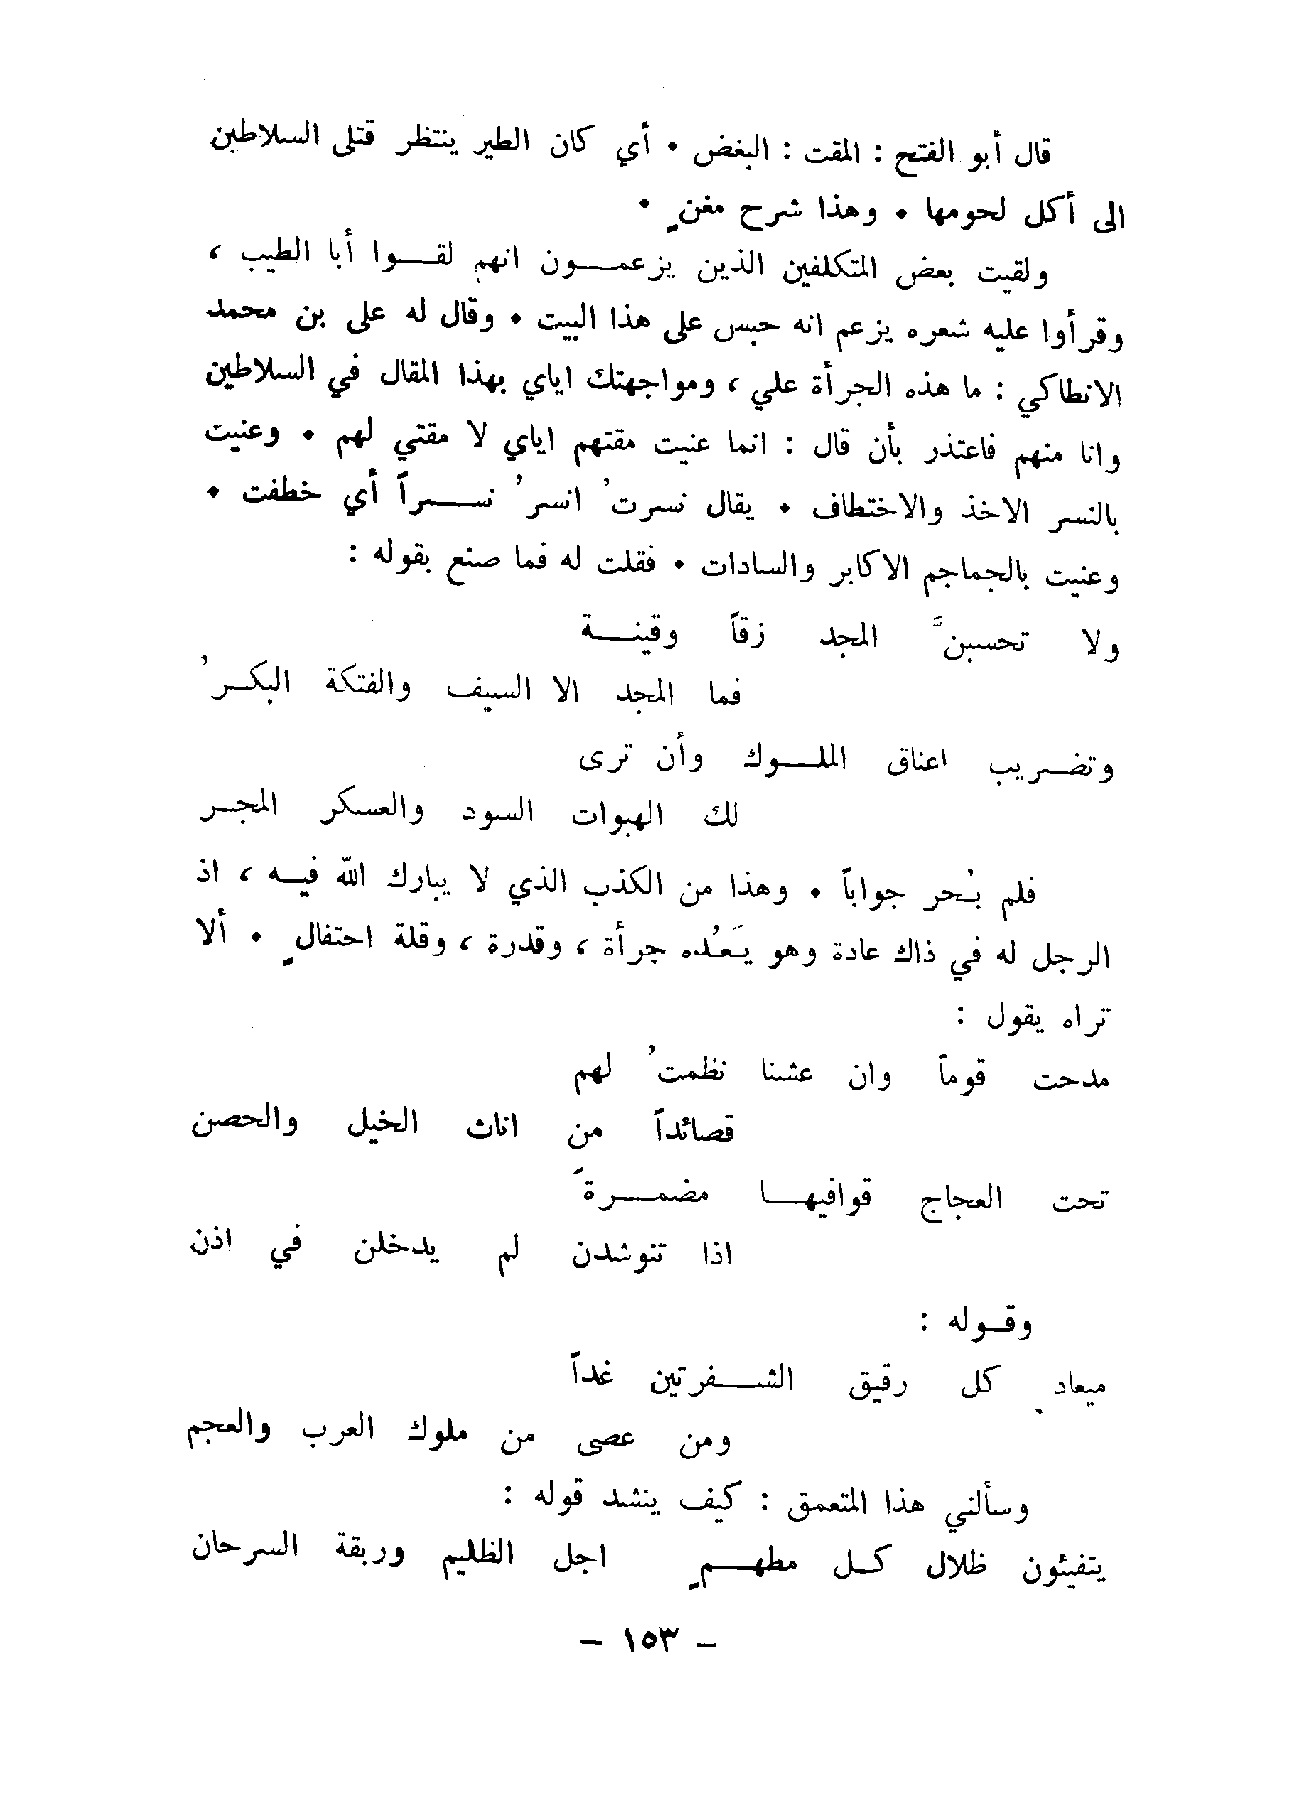 قال أبو الفتح : المقت : البغض • أي كان الطير ينتظر قتلى السلاطين
الى أكل لحومها • وهذا شرح مغنٍ •
ولقيت بعض المتكلفين الذين يزعمـــون انهم لقـــوا أبا الطيب ،
وقرأوا عليه شعره يزعم انه حبس على هذا البيت • وقال له على بن محمد
الانطاكي : ما هذه الجرأة علي ، ومواجهتك اياي بهذا المقال في السلاطين
وانا منهم فاعتذر بأن قال : انما عنيت مقتهم اياي لا مقتي لهم • وعنيت
بالنسر الاخذ والاختطاف • يقال نسرتُ انسرُ نســـراً أي خطفت •
وعنيت بالجماجم الاكابر والسادات • فقلت له فما صنع بقوله :
ولا تحسبنَّ المجد زقاً وقينـــة
فما المجد الا السيف والفتكة البكـرُ
وتضـريب اعناق الملـــوك وأن ترى
لك الهبوات السود والعسكر المجـر
فلم يُحر جواباً • وهذا من الكذب الذي لا يبارك الله فيـه ، اذ
الرجل له في ذاك عادة وهو يَعُده جرأة ، وقدرة ، وقلة احتفالٍ • ألا
تراه يقول :
مدحت قوماً وان عشنا نظمتُ لهم
قصائداً من اناث الخيل والحصن
تحت العجاج قوافيهـــا مضمـــرةً
اذا تنوشدن لم يدخلن في اذن
وقـوله :
ميعاد كل رقيق الشـــفرتين غداً
ومن عصى من ملوك العرب والعجم
وسألني هذا المتعمق : كيف ينشد قوله :
يتفيئون ظلال كـل مطهـــمٍ اجل الظليم وربقة السرحان
– ١٥٣ –